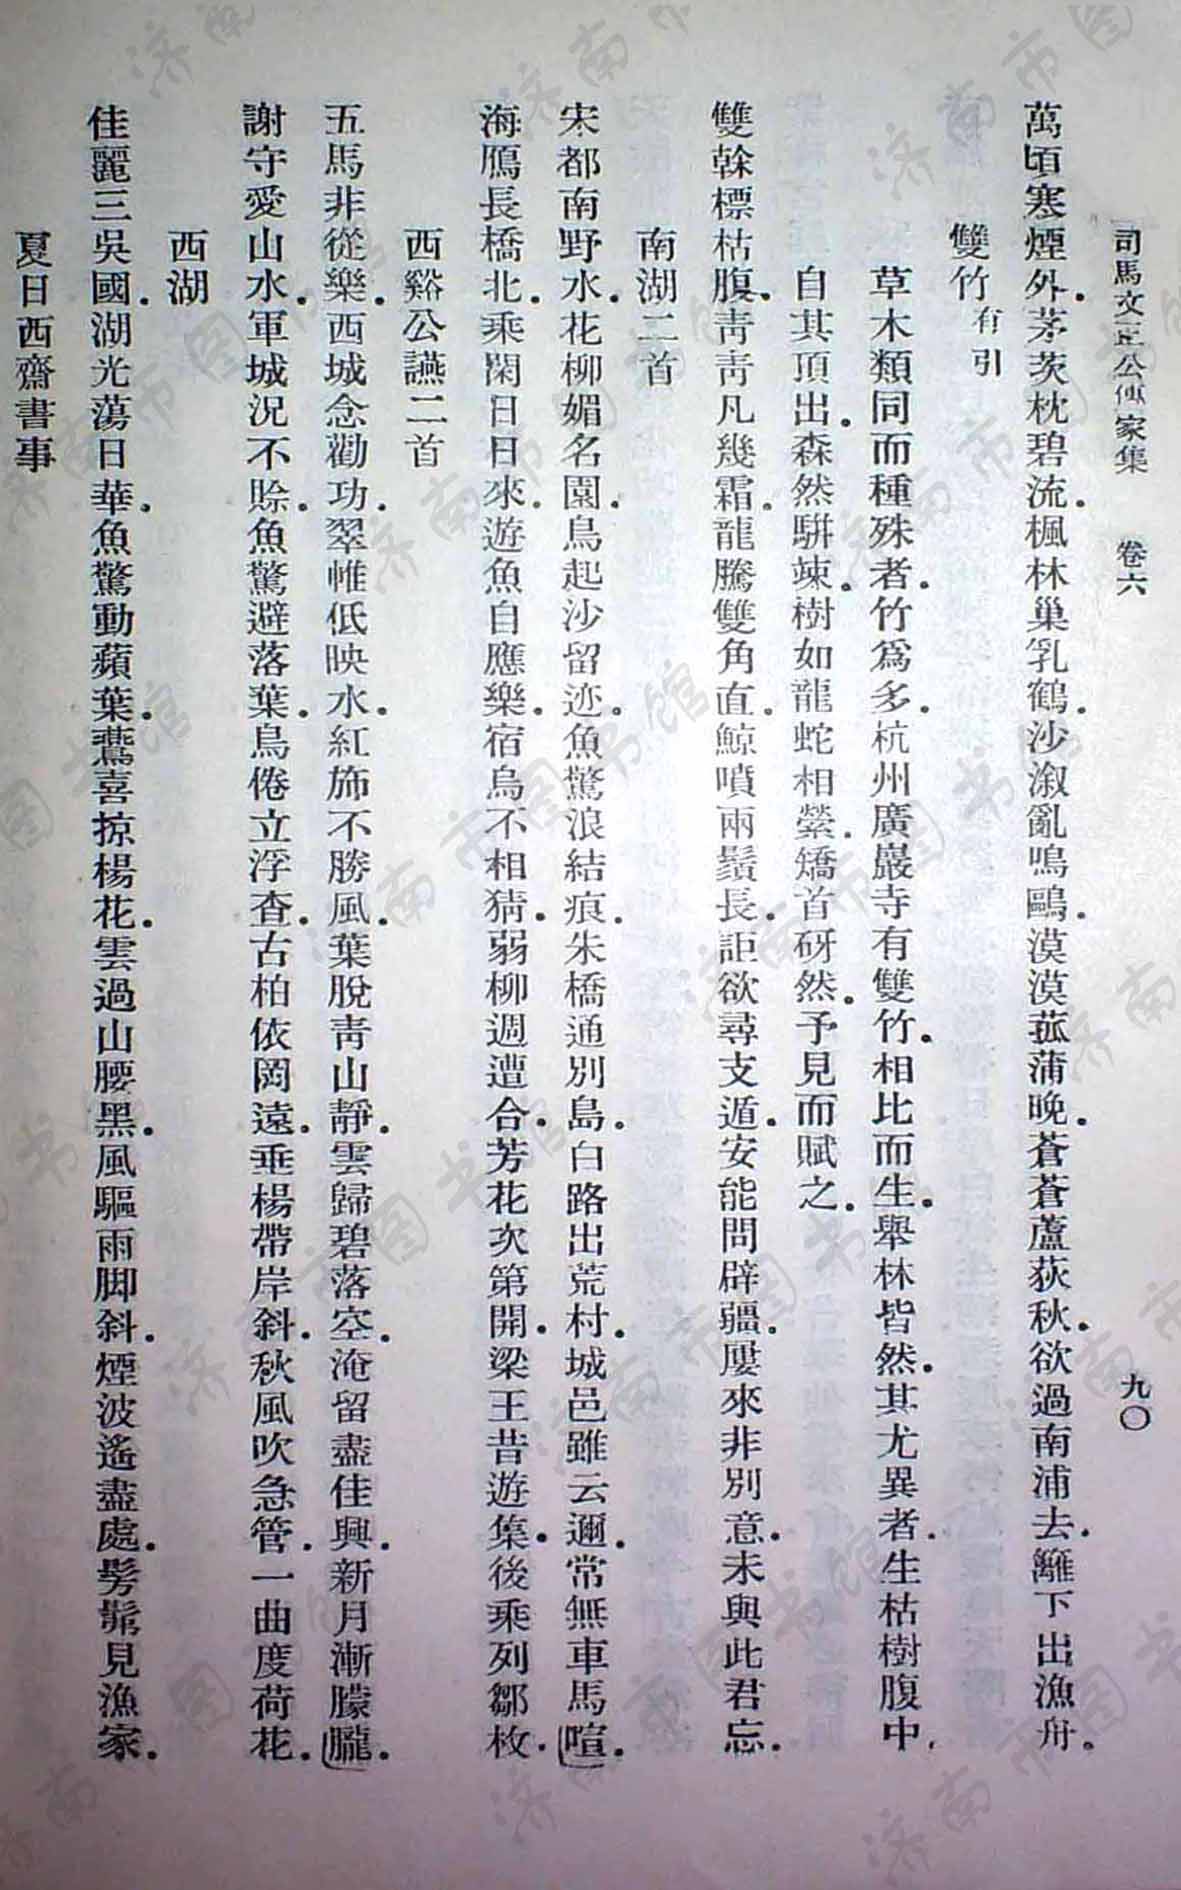 司馬文正公傳家集 卷六 九〇
萬頃寒煙外。茅茨枕碧流。楓林巢乳鶴。沙溆亂鳴鷗。漠漠菰蒲晚。蒼蒼蘆荻秋。欲過南浦去。籬下出漁舟。
雙竹有引
草木類同而種殊者。竹爲多。杭州廣嚴寺有雙竹。相比而生。舉林皆然。其尤異者。生枯樹腹中。
自其頂出。森然騈竦。樹如龍蛇相縈。矯首砑然。予見而賦之。
雙榦標枯腹。靑靑凡幾霜。龍騰雙角直。鯨噴兩鬚長。詎欲尋支遁。安能問辟疆。屢來非別意。未與此君忘。
南湖二首
宋都南野水。花柳媚名園。鳥起沙留迹。魚驚浪結痕。朱橋通別島。白路出荒村。城邑雖云邇。常無車馬(喧)。
海鴈長橋北。乘閑日日來。遊魚自應樂。宿鳥不相猜。弱柳週遭合。芳花次第開。梁王昔遊集。後乘列鄒枚。
西谿公讌二首
五馬非從樂。西城念勸功。翠帷低映水。紅斾不勝風。葉脫靑山靜。雲歸碧落空。淹留盡佳興。新月漸朦(朧)。
謝守愛山水。軍城況不賒。魚驚避落葉。鳥倦立浮査。古柏依岡遠。垂楊帶岸斜。秋風吹急管。一曲度荷花。
西湖
佳麗三吳國。湖光蕩日華。魚驚動蘋葉。鷰喜掠楊花。雲過山腰黑。風驅雨脚斜。煙波遙盡處。髣髴見漁家。
夏日西齋書事
济南市图书馆